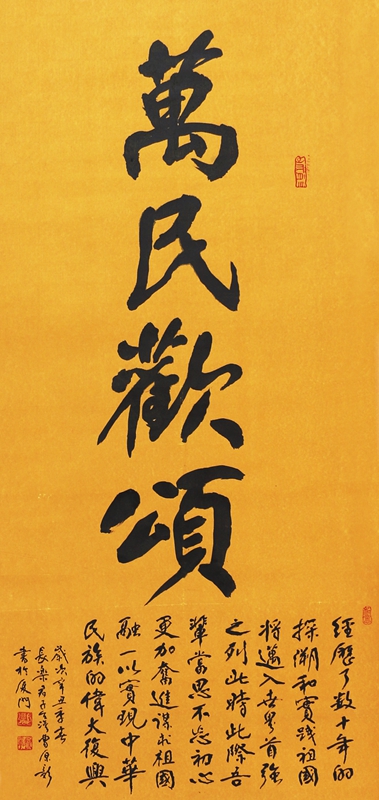 萬民歡頌
經歷了數十年的
探溯和實踐祖國
將邁入世界首強
之列此時此際吾
輩當思不忘初心
更加奮進謀求祖國
融一以實現中華
民族的偉大復興
歲次辛丑季春
書於廈門